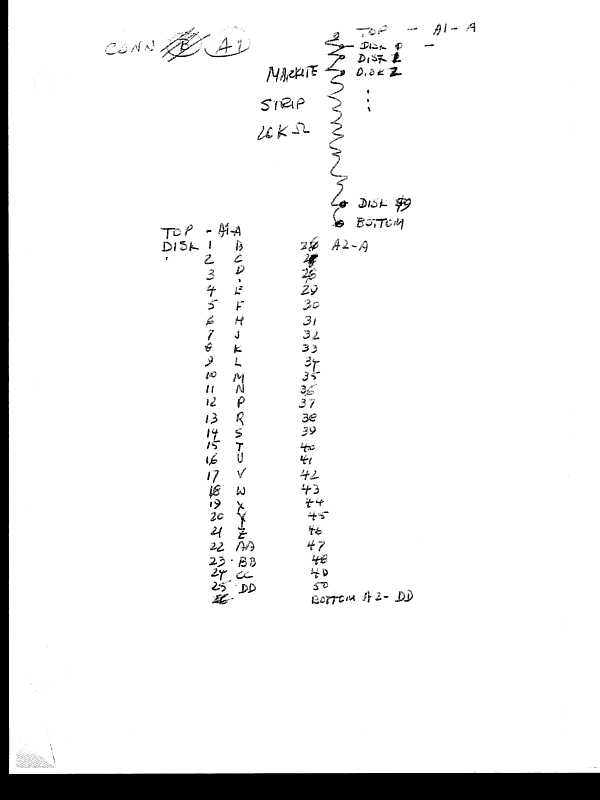 TOP - A1-A
CONN A1
DISK 0 -
DISK 1
MARKITE DISK 2
STRIP
26K Ω
DISK 49
BOTTOM
TOP - A1-A
DISK 1 B 26 A2-A
2 C 27
3 D 28
4 E 29
5 F 30
6 H 31
7 J 32
8 K 33
9 L 34
10 M 35
11 N 36
12 P 37
13 R 38
14 S 39
15 T 40
16 U 41
17 V 42
18 W 43
19 X 44
20 Y 45
21 Z 46
22 AA 47
23 BB 48
24 CC 49
25 DD 50
BOTTOM A2-DD